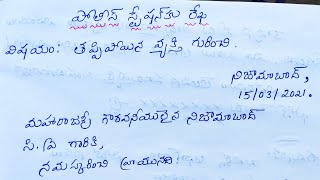 పోలీస్ స్టేషన్‌కు లేఖ
విషయం: తప్పిపోయిన వ్యక్తి గురించి.
నిజామాబాద్,
15/03/2021.
మహారాజశ్రీ గౌరవనీయులైన నిజామాబాద్
సి.ఐ గారికి,
నమస్కరించి వ్రాయునది